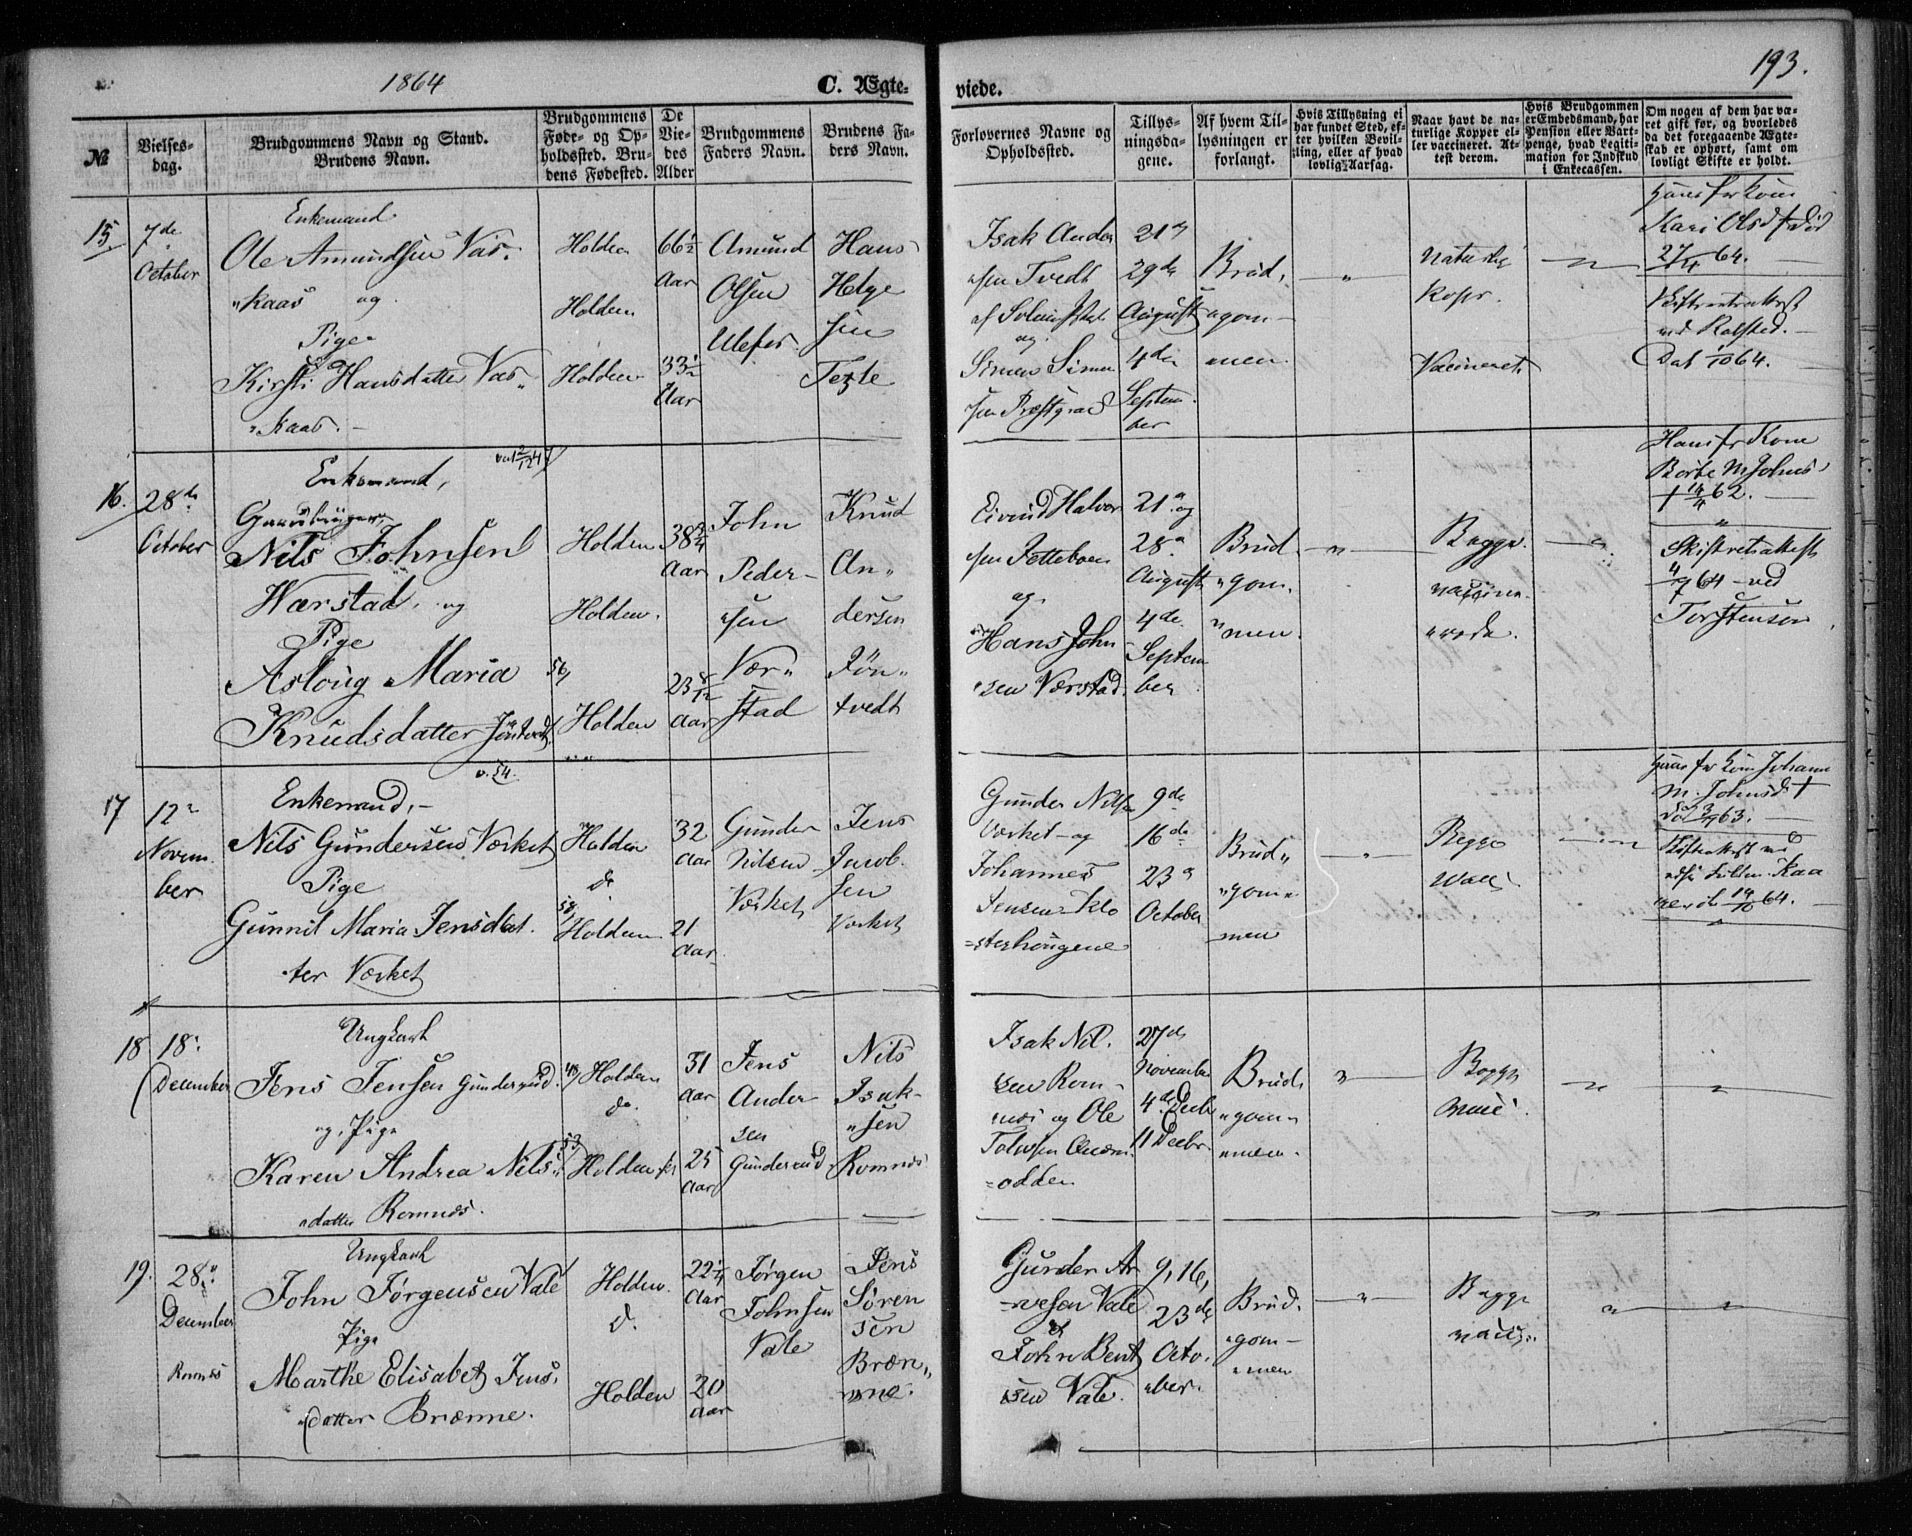 1864
C. Ægte-
viede.
193.
№
Vielses-
dag.
Brudgommens Navn og Stand.
Brudens Navn.
Brudgommens
Føde- og Op-
holdssted. Bru-
dens Fødested.
De
Vie-
des
Alder
Brudgommens
Faders Navn.
Brudens Fa-
ders Navn.
Forlovernes Navne og
Opholdssted.
Tillys-
ningsda-
gene.
Af hvem Til-
lysningen er
forlangt.
Hvis Tillysning ei
har fundet Sted, ef-
ter hvilken Bevil-
ling, eller af hvad
lovlig Aarsag.
Naar havt de na-
turlige Kopper el-
ler vaccineret. At-
test derom.
Hvis Brudgommen
er Embedsmand, har
Pension eller Vart-
penge, hvad Legiti-
mation for Indskud
i Enkecassen.
Om nogen af dem har væ-
ret gift før, og hvorledes
da det foregaaende Ægte-
skab er ophørt, samt om
lovligt Skifte er holdt.
15
7de
October
Enkemand
Ole Amundsen Vas-
"kaas og
Pige
Kirsti Hansdatter Vas-
"kaas.
Holden
Holden
Holden
66½
Aar
33½
Aar
Amund
Olsen
Ulefos
Hans
Helge
sen
Tezle
Isak Ander
sen Tvedt
og
Simen Simen
sen
21de
29de
August
4de
Septem-
ber
Brud-
"gom-
men
Naturlig
Kopr.
Vaccineret.
Hans før Kone
Kari Olsd † død
27/4 64.
ved Rolfsted.
Dat 1/10 64.
16.
28de
October
Enkemand,
Gaardbruger
Nils Johnsen
Værstad, og
Pige
Aslaug Maria
Knudsdatter Jöntvedt
Holden
Holden.
56/
Holden
38¾
Aar
23 8/12
Aar
John
Peder-
"sen
Vær"
stad
Knud
An"
dersen
Jön"
tvedt
Eivind Halvor
sen Jetteboen
og
Hans John
"sen Værstad.
21de og
28de
August
4de
Septem
ber
Brud-
"gom-
"men.
Begge
vaccine-
"rede.
Hans før Kone
Berte M Johns
† 62.
Skifteretsattest
64 - ved
Torstenson
17
12te
Novem-
ber
v. 54.
Enkemand,
Nils Gundersen Værket
Pige
Gunnil Maria Jensdat-
ter Værket
Holden
do
58/
Holden
32
Aar
21
Aar
Gunder
Nilsen
Værket
Jens
Jacob-
sen
Værket
Gunder Nilsen
Værket og
Johannes
Jensen Klo
=sterhougene
9de
16de
23de
October
Brud"
"gom"
men
Begge
Vacc.
Hans før Kone Johanne
M. Johnsd †
død 63.
64.
18
18de
December
Ungkarl
Jens Jensen Gunderud.
og Pige
Karen Andrea Nils"
"datter Romnes.
49/ Holden
do.
53
Holden
31
Aar
25
Aar
Jens
Ander-
sen
Gunderud
Nils
Isak-
"sen
Romnes
Isak Nil-
sen Rom-
nes og Ole
=odden
27de
November
4de Decbr
11 Decbr.
Brud-
"gom-
"men.
Begge
vacc.
19.
28de
December
Romnes
Ungkarl
John Jørgensen Vale
Pige
Marthe Elisabet Jens-
"datter Brænne.
Holden
do.
Holden
22¼
Aar
20
Aar
Jørgen
Johnsen
Vale
Jens
Søren
sen
Bræn"
"ne.
Gunder Ar
=nesen Vale
et
John Bent
sen Vale.
9, 16,
23de
Octo-
"ber.
Brud-
"gom-
"men
Begge
vacc.